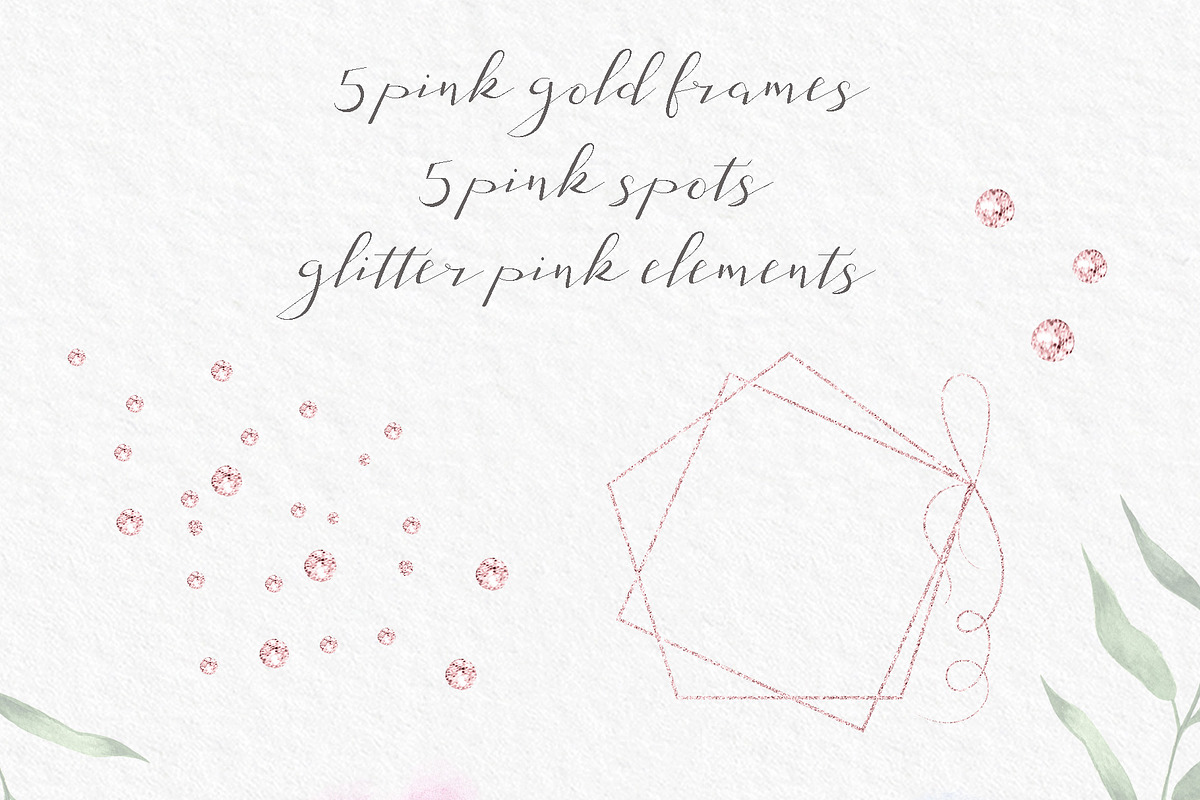 5 pink gold frames
5 pink spots
glitter pink elements